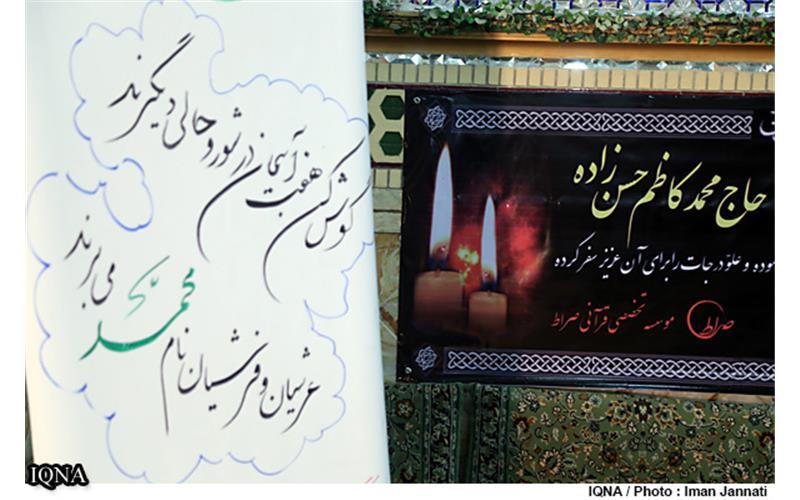 گوش کن هفت آسمان در شور و حالی دیگرند
عرشیان و فرشیان نام محمد می برند
حاج محمد کاظم حسن زاده
و علو درجات را برای آن عزیز سفر کرده
صراط موسسه تخصصی قرآنی صراط
IQNA
IQNA / Photo : Iman Jannati